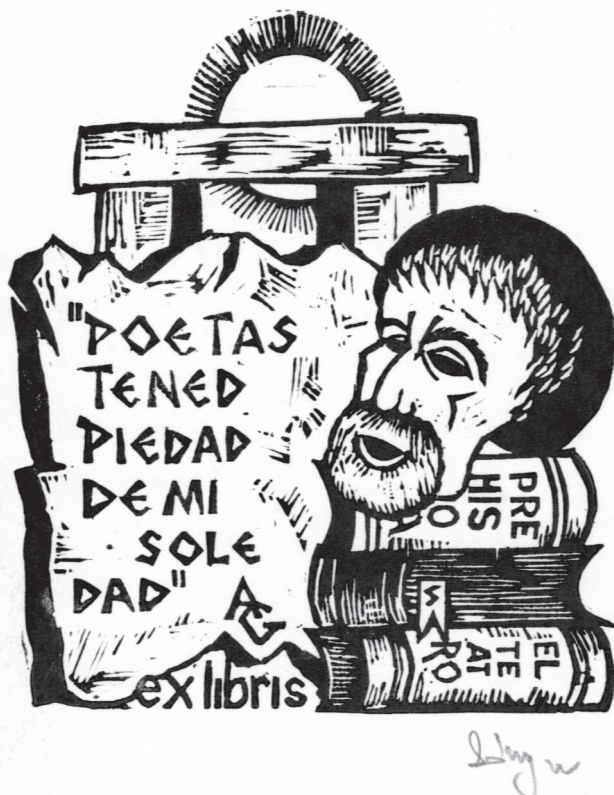 "POETAS
TENED
PIEDAD
DE MI
SOLE
DAD"
AG
ex libris
PRE
HIS
O
S
EL
TE
AT
RO